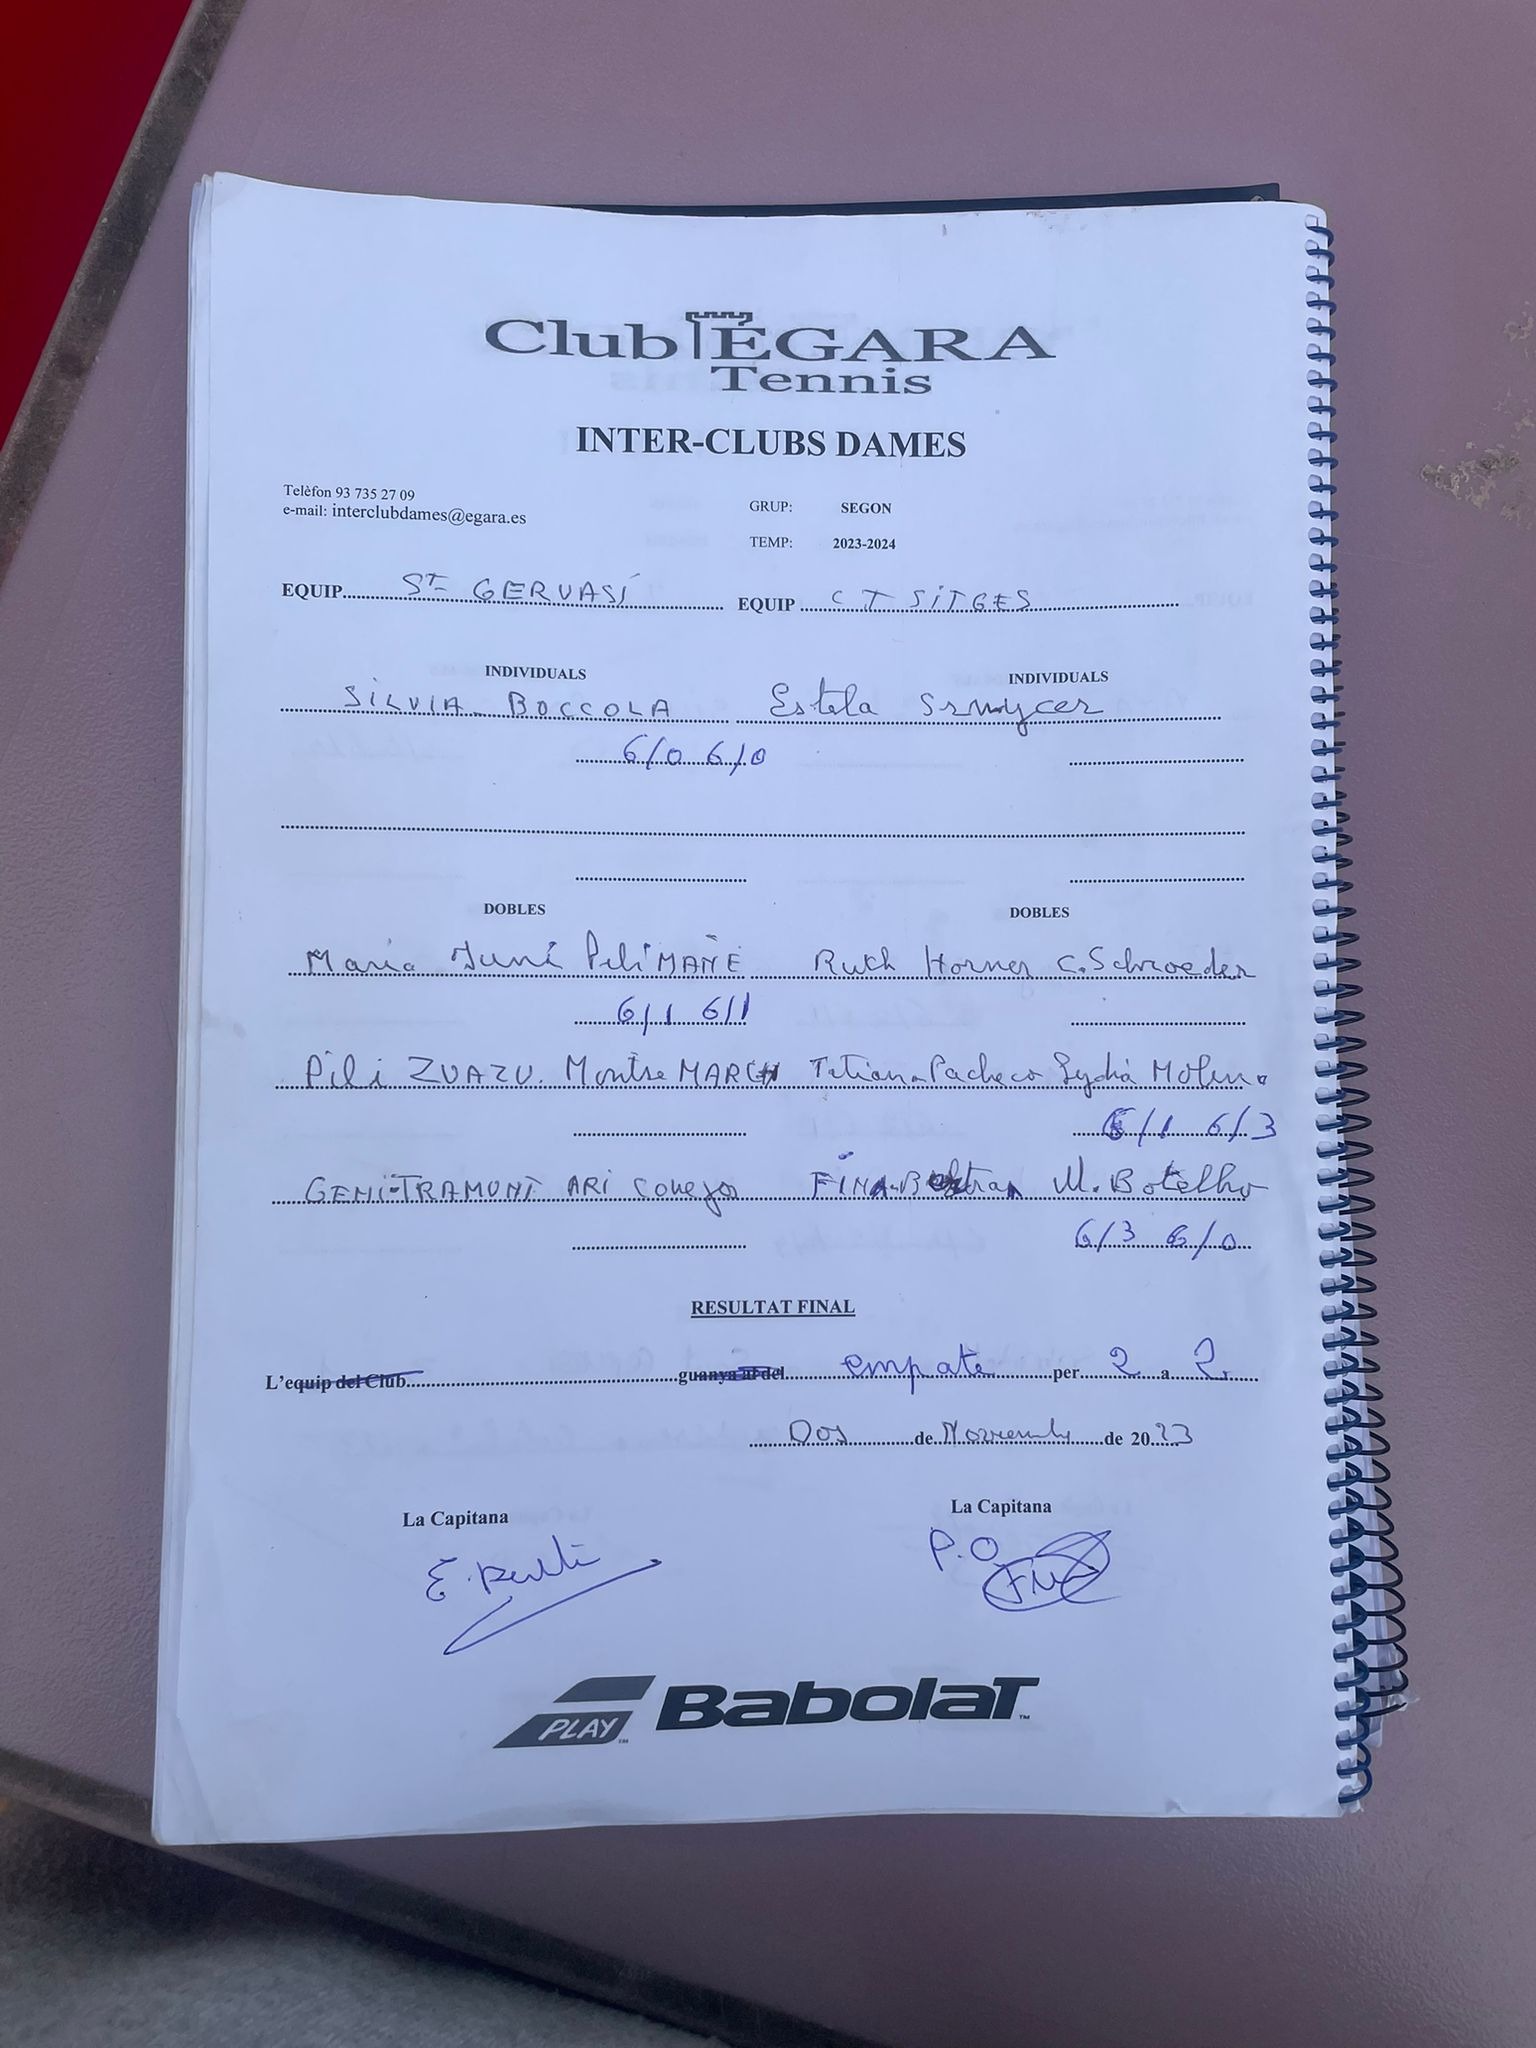 Club EGARA
Tennis
INTER-CLUBS DAMES
Telèfon 93 735 27 09
e-mail: interclubdames@egara.es
GRUP: SEGON
TEMP: 2023-2024
EQUIP St GERVASI EQUIP CT SITGES
INDIVIDUALS INDIVIDUALS
SILVIA BOCCOLA Estela
6/0 6/0
DOBLES DOBLES
Maria Juni Pili MAÑE Ruth Horner C. Schroeder
6/1 6/1
Pili ZUAZU. Montse MARCH Tatiana Pacheco Lydia Molina
6/1 6/3
GEMI TRAMUNT ARI Conejo FINA Beltran M. Botelho
6/3 6/0
RESULTAT FINAL
L'equip del Club guanya al del empate per 2 a 2
Dos de Novembre de 2023
La Capitana La Capitana
P.O.
PLAY BabolaT